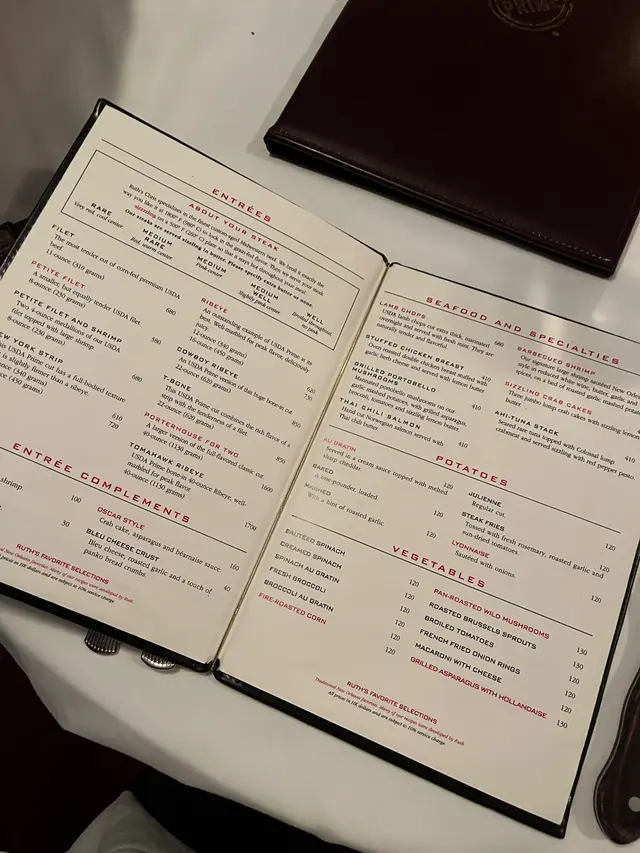 PRIME
ENTRÉES
ABOUT YOUR STEAK
Ruth's Chris specializes in the finest custom-aged Midwestern beef. We broil it exactly the
way you like it at 1800° F (980° C) to lock in the corn-fed flavor. Then we serve your steak
sizzling on a 500° F (260° C) plate so that it stays hot throughout your meal.
Our steaks are served sizzling in butter. Please specify extra butter or none.
RARE
Very red, cool center
MEDIUM
RARE
Red, warm center
MEDIUM
Pink center
MEDIUM
WELL
Slightly pink center
WELL
Broiled throughout,
no pink
FILET
The most tender cut of corn-fed premium USDA
beef.
11-ounce (310 grams) 680
PETITE FILET
A smaller, but equally tender USDA filet.
8-ounce (230 grams) 580
PETITE FILET AND SHRIMP
Two 4-ounce medallions of our USDA
filet topped with large shrimp.
8-ounce (230 grams) 680
NEW YORK STRIP
This USDA Prime cut has a full-bodied texture
is slightly firmer than a ribeye.
ounce (340 grams) 610
ounce (450 grams) 720
RIBEYE
An outstanding example of USDA Prime at its
best. Well marbled for peak flavor, deliciously
juicy.
12-ounce (340 grams) 520
16-ounce (450 grams) 730
COWBOY RIBEYE
An USDA Prime version of this huge bone-in cut.
22-ounce (620 grams) 850
T-BONE
This USDA Prime cut combines the rich flavor of a
strip with the tenderness of a filet.
22-ounce (620 grams) 850
PORTERHOUSE FOR TWO
A larger version of the full-flavored classic cut.
40-ounce (1130 grams) 1600
TOMAHAWK RIBEYE
USDA Prime bone-in 40-ounce Ribeye, well-
marbled for peak flavor
40-ounce (1130 grams) 1700
ENTRÉE COMPLEMENTS
shrimp. 100
50
OSCAR STYLE
Crab cake, asparagus and béarnaise sauce. 160
BLEU CHEESE CRUST
Bleu cheese, roasted garlic and a touch of
panko bread crumbs. 40
RUTH'S FAVORITE SELECTIONS
New Orleans favorites. Many of our recipes were developed by Ruth
prices in HK dollars and are subject to 10% service charge
SEAFOOD AND SPECIALTIES
LAMB CHOPS 680
USDA lamb chops cut extra thick, marinated
overnight and served with fresh mint. They are
naturally tender and flavorful.
STUFFED CHICKEN BREAST 410
Oven roasted double chicken breast stuffed with
garlic herb cheese and served with lemon butter.
GRILLED PORTOBELLO
MUSHROOMS 410
Marinated portobello mushrooms on our
garlic mashed potatoes, with grilled asparagus,
broccoli, tomatoes and sizzling lemon butter.
THAI CHILI SALMON 410
Hand cut Norwegian salmon served with
Thai chili butter.
BARBECUED SHRIMP
Our signature large shrimp sautéed New Orleans
style in reduced white wine, butter, garlic, and
spices, on a bed of roasted garlic mashed potatoes.
SIZZLING CRAB CAKES
Three jumbo lump crab cakes with sizzling lemon
AHI-TUNA STACK
Seared rare tuna topped with Colossal lump
crabmeat and served sizzling with red pepper pesto.
POTATOES
AU GRATIN 120
Served in a cream sauce topped with melted
sharp cheddar.
BAKED 120
A one-pounder, loaded
MASHED 120
With a hint of roasted garlic
JULIENNE 120
Regular cut.
STEAK FRIES 120
Tossed with fresh rosemary, roasted garlic and
sun-dried tomatoes.
LYONNAISE 120
Sautéed with onions.
VEGETABLES
SAUTÉED SPINACH 120
CREAMED SPINACH 120
SPINACH AU GRATIN 120
FRESH BROCCOLI 120
BROCCOLI AU GRATIN 120
FIRE-ROASTED CORN 120
PAN-ROASTED WILD MUSHROOMS 130
ROASTED BRUSSELS SPROUTS 130
BROILED TOMATOES 120
FRENCH FRIED ONION RINGS 120
MACARONI WITH CHEESE 120
GRILLED ASPARAGUS WITH HOLLANDAISE 130
RUTH'S FAVORITE SELECTIONS
Traditional New Orleans favorites. Many of our recipes were developed by Ruth
All prices in HK dollars and are subject to 10% service charge